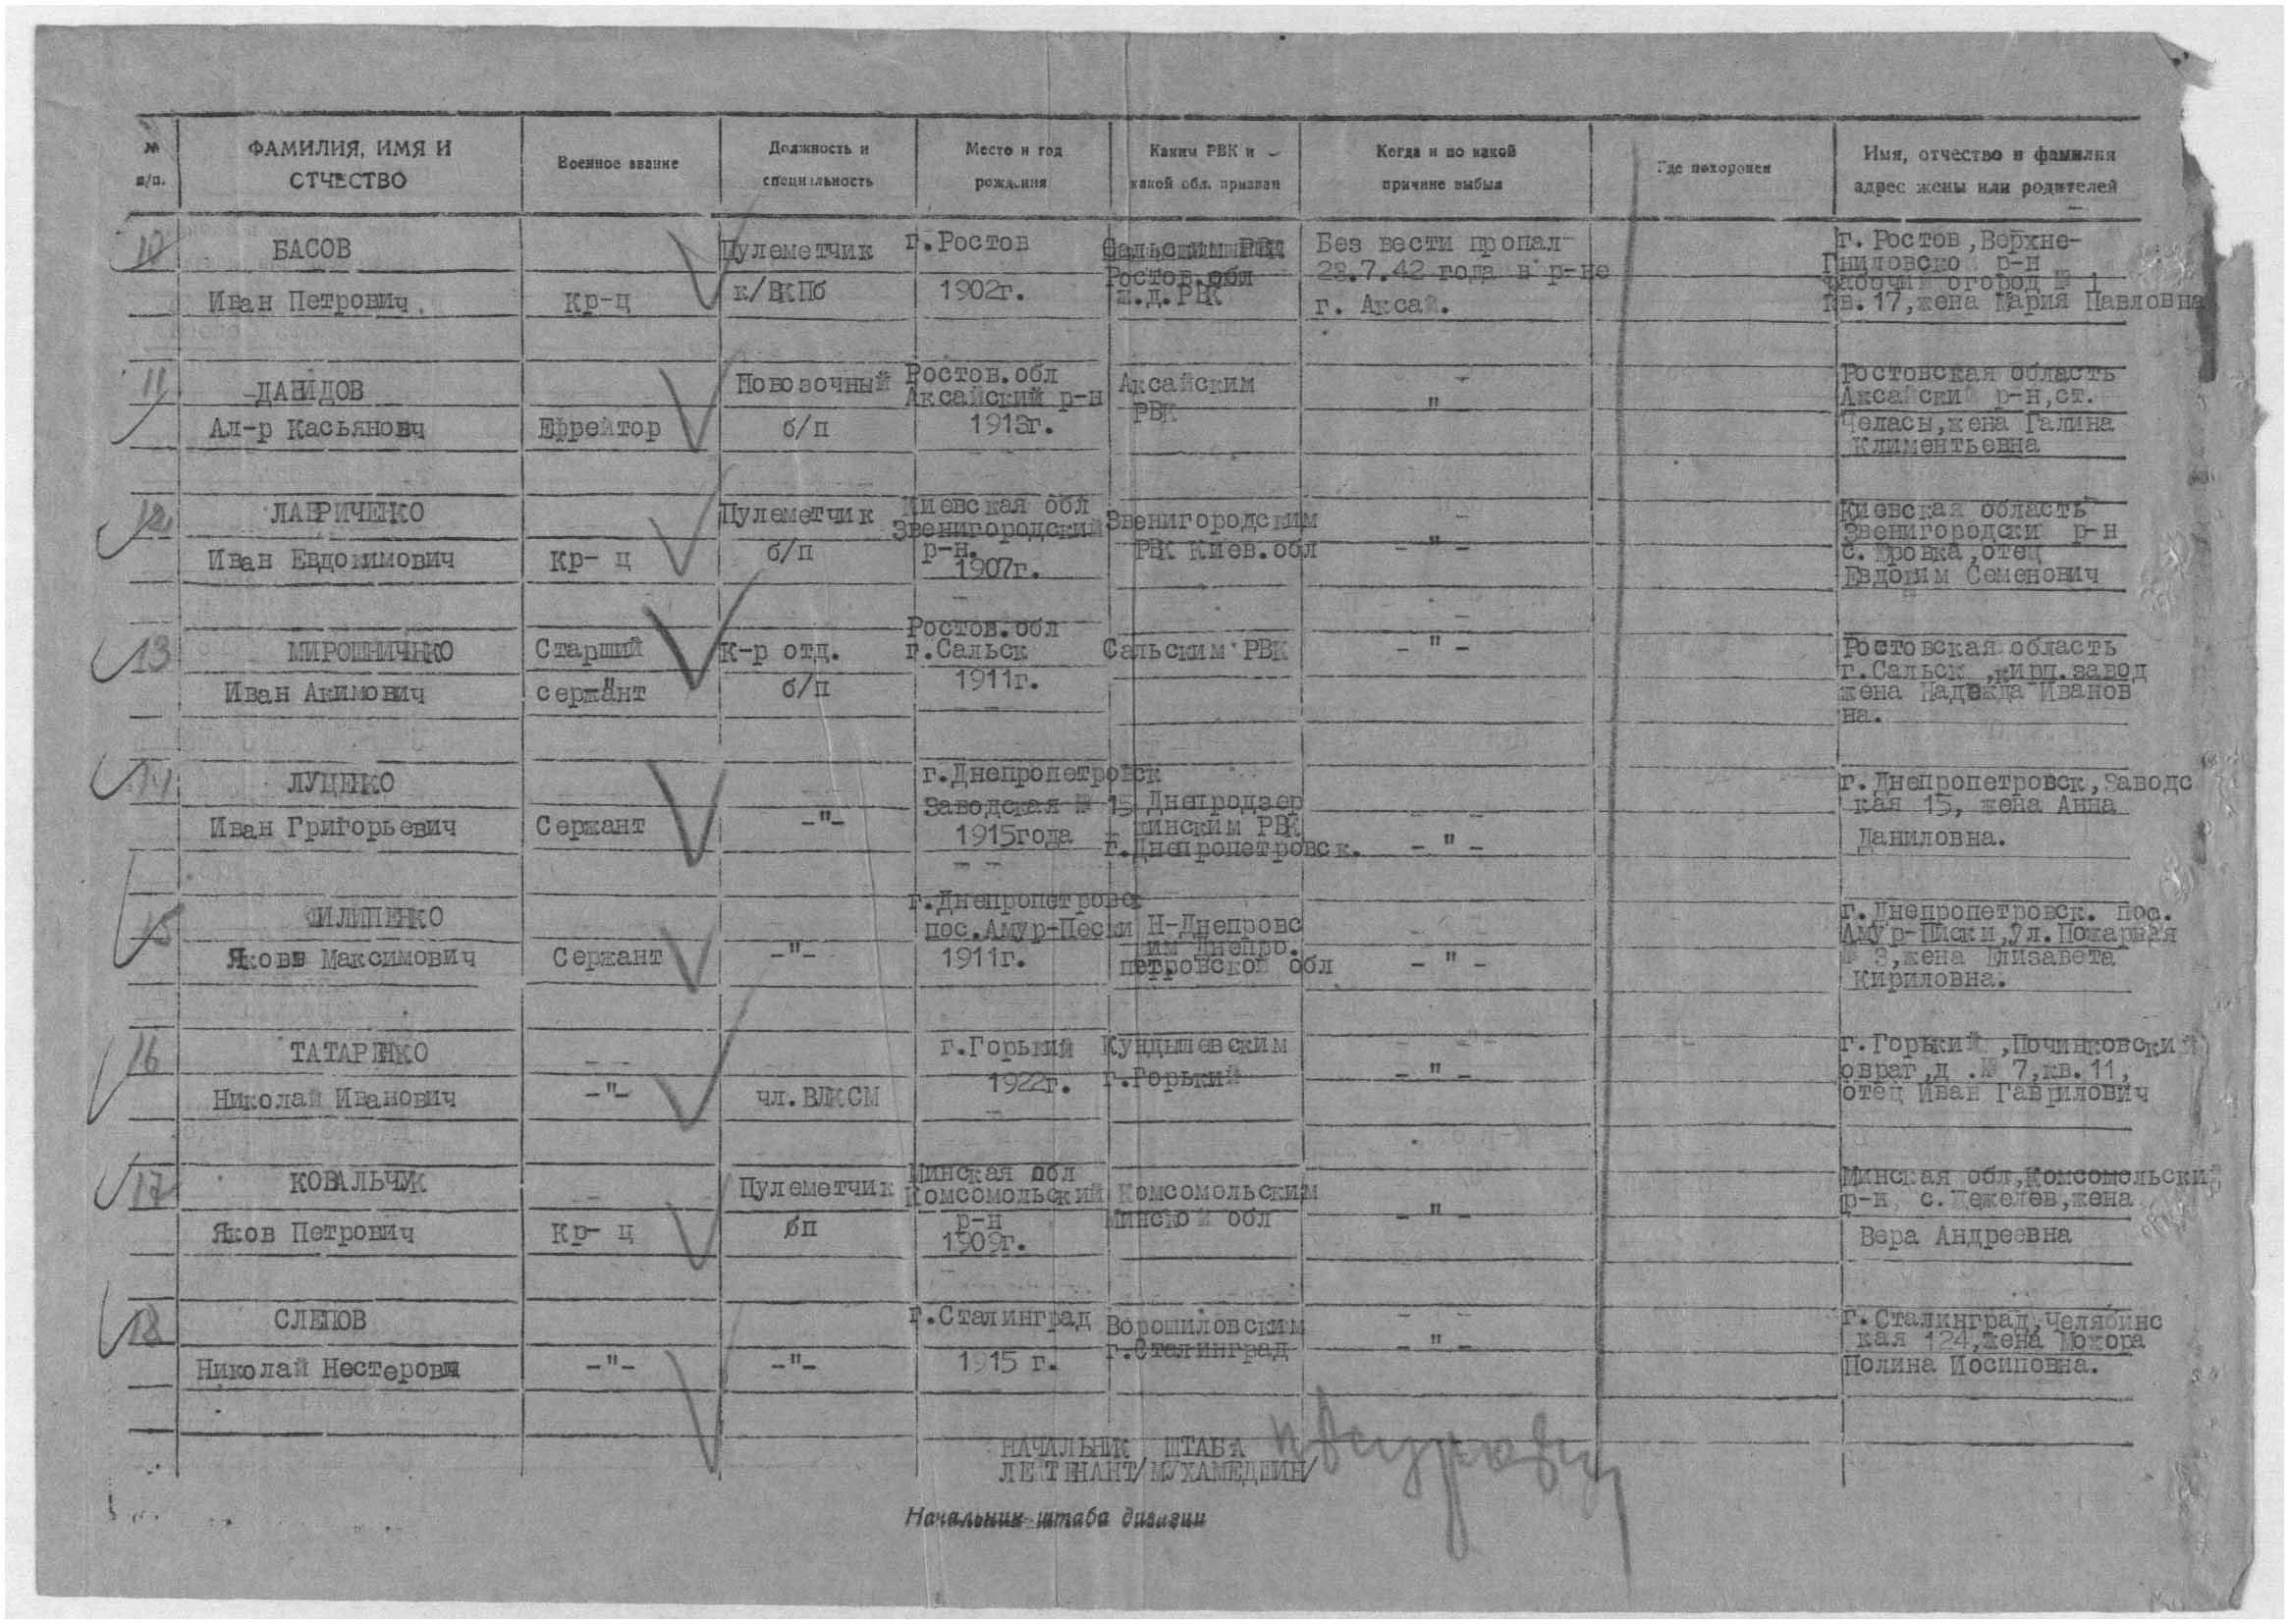 № п/п.
ФАМИЛИЯ, ИМЯ И ОТЧЕСТВО
Военное звание
Должность и специальность
Место и год рождения
Каким РВК и какой обл. призван
Когда и по какой причине выбыл
Где похоронен
Имя, отчество и фамилия адрес жены или родителей
10
БАСОВ
Иван Петрович.
Кр-ц
Пулеметчик
к/ВКПб
г. Ростов
1902г.
Ростов.обл
ж.д.РВК
Без вести пропал
28.7.42 года в р-не
г. Аксай.
г. Ростов, Верхне-
Гниловско р-н
рабочий огород № 1
кв. 17, жена Мария Павловна
11
ДАВИДОВ
Ал-р Касьянович
Ефрейтор
Повозочный
б/п
Ростов.обл
Аксайский р-н
1913г.
Аксайским
РВК
"
Ростовская область
Аксайский р-н, ст.
жена Галина
Климентьевна
12
ЛАВРИЧЕНКО
Иван Евдокимович
Кр- ц
Пулеметчик
б/п
Киевская обл
Звенигородский
р-н.
1907г.
Звенигородским
РВК Киев.обл
- " -
Киевская область
Звенигородски р-н
отец
Евдоким Семенович
13
МИРОШНИЧНКО
Иван Акимович
Старший
сержант
К-р отд.
б/п
Ростов.обл
г.Сальск
1911г.
Сальским РВК
- " -
Ростовская область
г.Сальск ,кирп.завод
жена Надежда Иванов
на.
14
ЛУЦЕНКО
Иван Григорьевич
Сержант
-"-
г.Днепропетровск
Заводская № 15
1915года
Днепродзер
жинским РВК
г.Днепропетровск.
- " -
г.Днепропетровск,Заводс
кая 15, жена Анна
Даниловна.
15
ФИЛИПЕНКО
Яков Максимович
Сержант
-"-
г.Днепропетровск
пос.Амур-Пески
1911г.
Н-Днепровс
им Днепро.
петровской обл
- " -
г.Днепропетровск. пос.
Амур-Писки,ул.Пожарная
№ 3,жена Елизавета
Кириловна.
16
ТАТАРЕНКО
Николай Иванович
-"-
чл.ВЛКСМ
г.Горький
1922г.
Кундышевским
г.Горький
- " -
г.Горький ,Починковский
овраг,д .№ 7,кв.11,
отец Иван Гаврилович
17
КОВАЛЬЧУК
Яков Петрович
Кр- ц
Пулеметчик
бп
Минская обл
Комсомольский
р-н
1909г.
Комсомольским
Минской обл
- " -
Минская обл,Комсомольский
р-н с. жена
Вера Андреевна
18
СЛЕПОВ
Николай Нестерови
-"-
-"-
г.Сталинград
1915 г.
Ворошиловским
г.Сталинград
- " -
г.Сталинград,Челябинс
кая 124,жена Мокора
Полина Иосиповна.
НАЧАЛЬНИК ШТАБА
ЛЕЙТЕНАНТ/МУХАМЕДШИН/
Начальник штаба дивизии